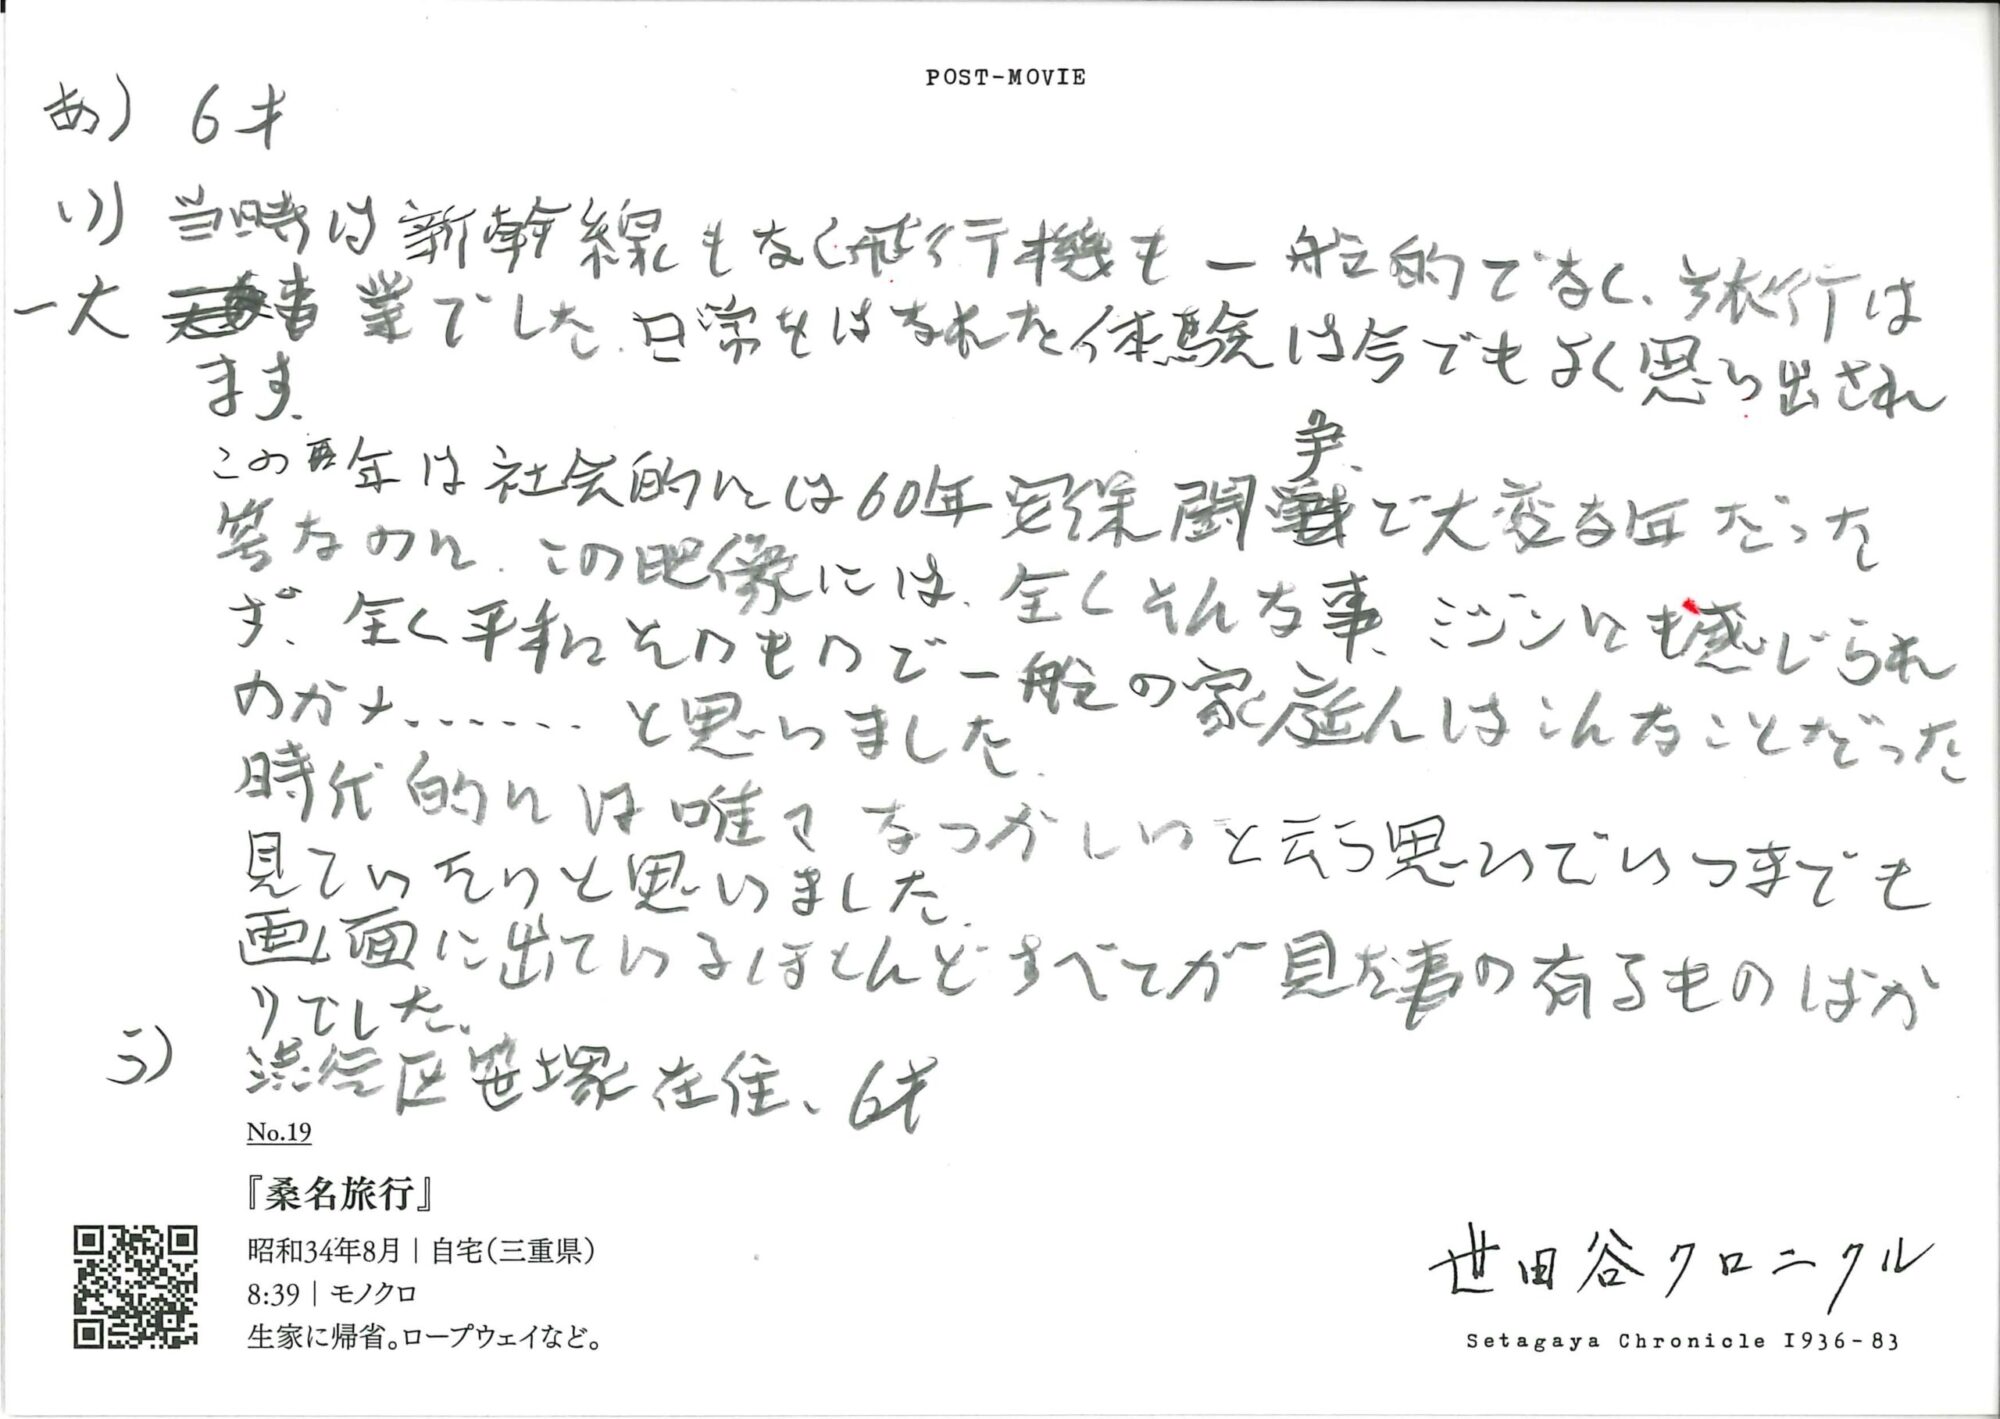 POST-MOVIE
あ) 6才
い) 当時は新幹線もなく飛行機も一般的でなく、旅行は
一大事業でした。日常をはなれた体験は今でもよく思い出され
ます。
この年は社会的には60年安保闘争で大変な年だった
筈なのに、この映像には、全くそんな事、ミジンにも感じられ
ず、全く平和そのもので一般の家庭人はこんなことだった
のかナ……と思いました。
時代的には唯々なつかしいと云う思いでいつまでも
見ていたいと思いました。
画面に出ているほとんどすべてが見た事の有るものばか
りでした。
う) 渋谷区笹塚在住、6才
No.19
『桑名旅行』
昭和34年8月｜自宅（三重県）
8:39｜モノクロ
生家に帰省。ロープウェイなど。
世田谷クロニクル
Setagaya Chronicle 1936-83